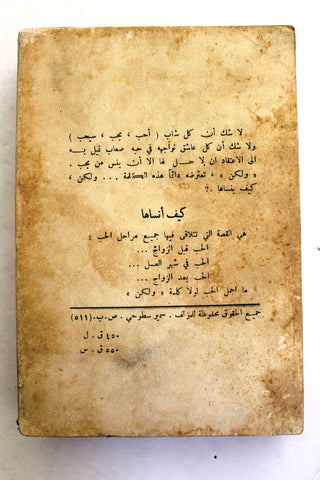 لا شك أن كل شاب ( أحب ، يحب ، سيحب )
ولا شك أن كل عاشق تواجهه في حبه صعاب تميل به
الى الاعتقاد أن لا حل لها الا أن ينسى من يحب .
« ولكن » ، تعترضه دائماً هذه الكلمة ... ولكن ،
كيف ينساها ؟.
كيف أنساها
هي القصة التي تتلاقى فيها جميع مراحل الحب :
الحب قبل الزواج ...
الحب في شهر العسل ...
الحب بعد الزواج ...
ما اجمل الحب لولا كلمة « ولكن »
جميع الحقوق محفوظة للمؤلف . سمير سطوحي . ص.ب. (٥١١)
٤٥٠ ق . ل
٥٥٠ ق . س